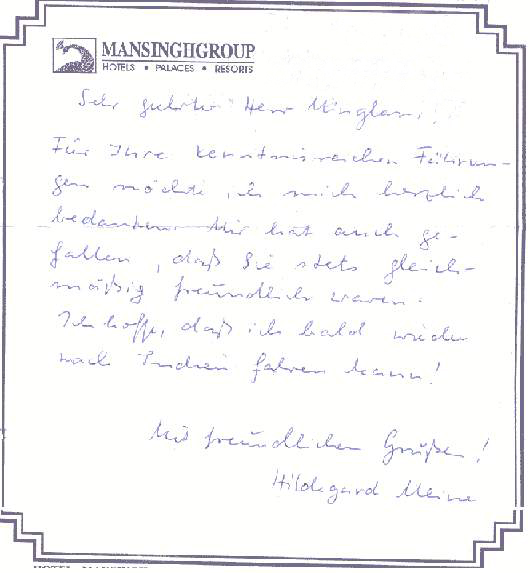 MANSINGHGROUP
HOTELS • PALACES • RESORTS
Sehr geehrter Herr
Für Ihre kenntnisreichen Führun-
gen möchte ich mich herzlich
bedanken. Mir hat auch ge-
fallen, daß Sie stets gleich-
mäßig freundlich waren.
Ich hoffe, daß ich bald wieder
nach Indien fahren kann!
Mit freundlichen Grüßen!
Hildegard Meine